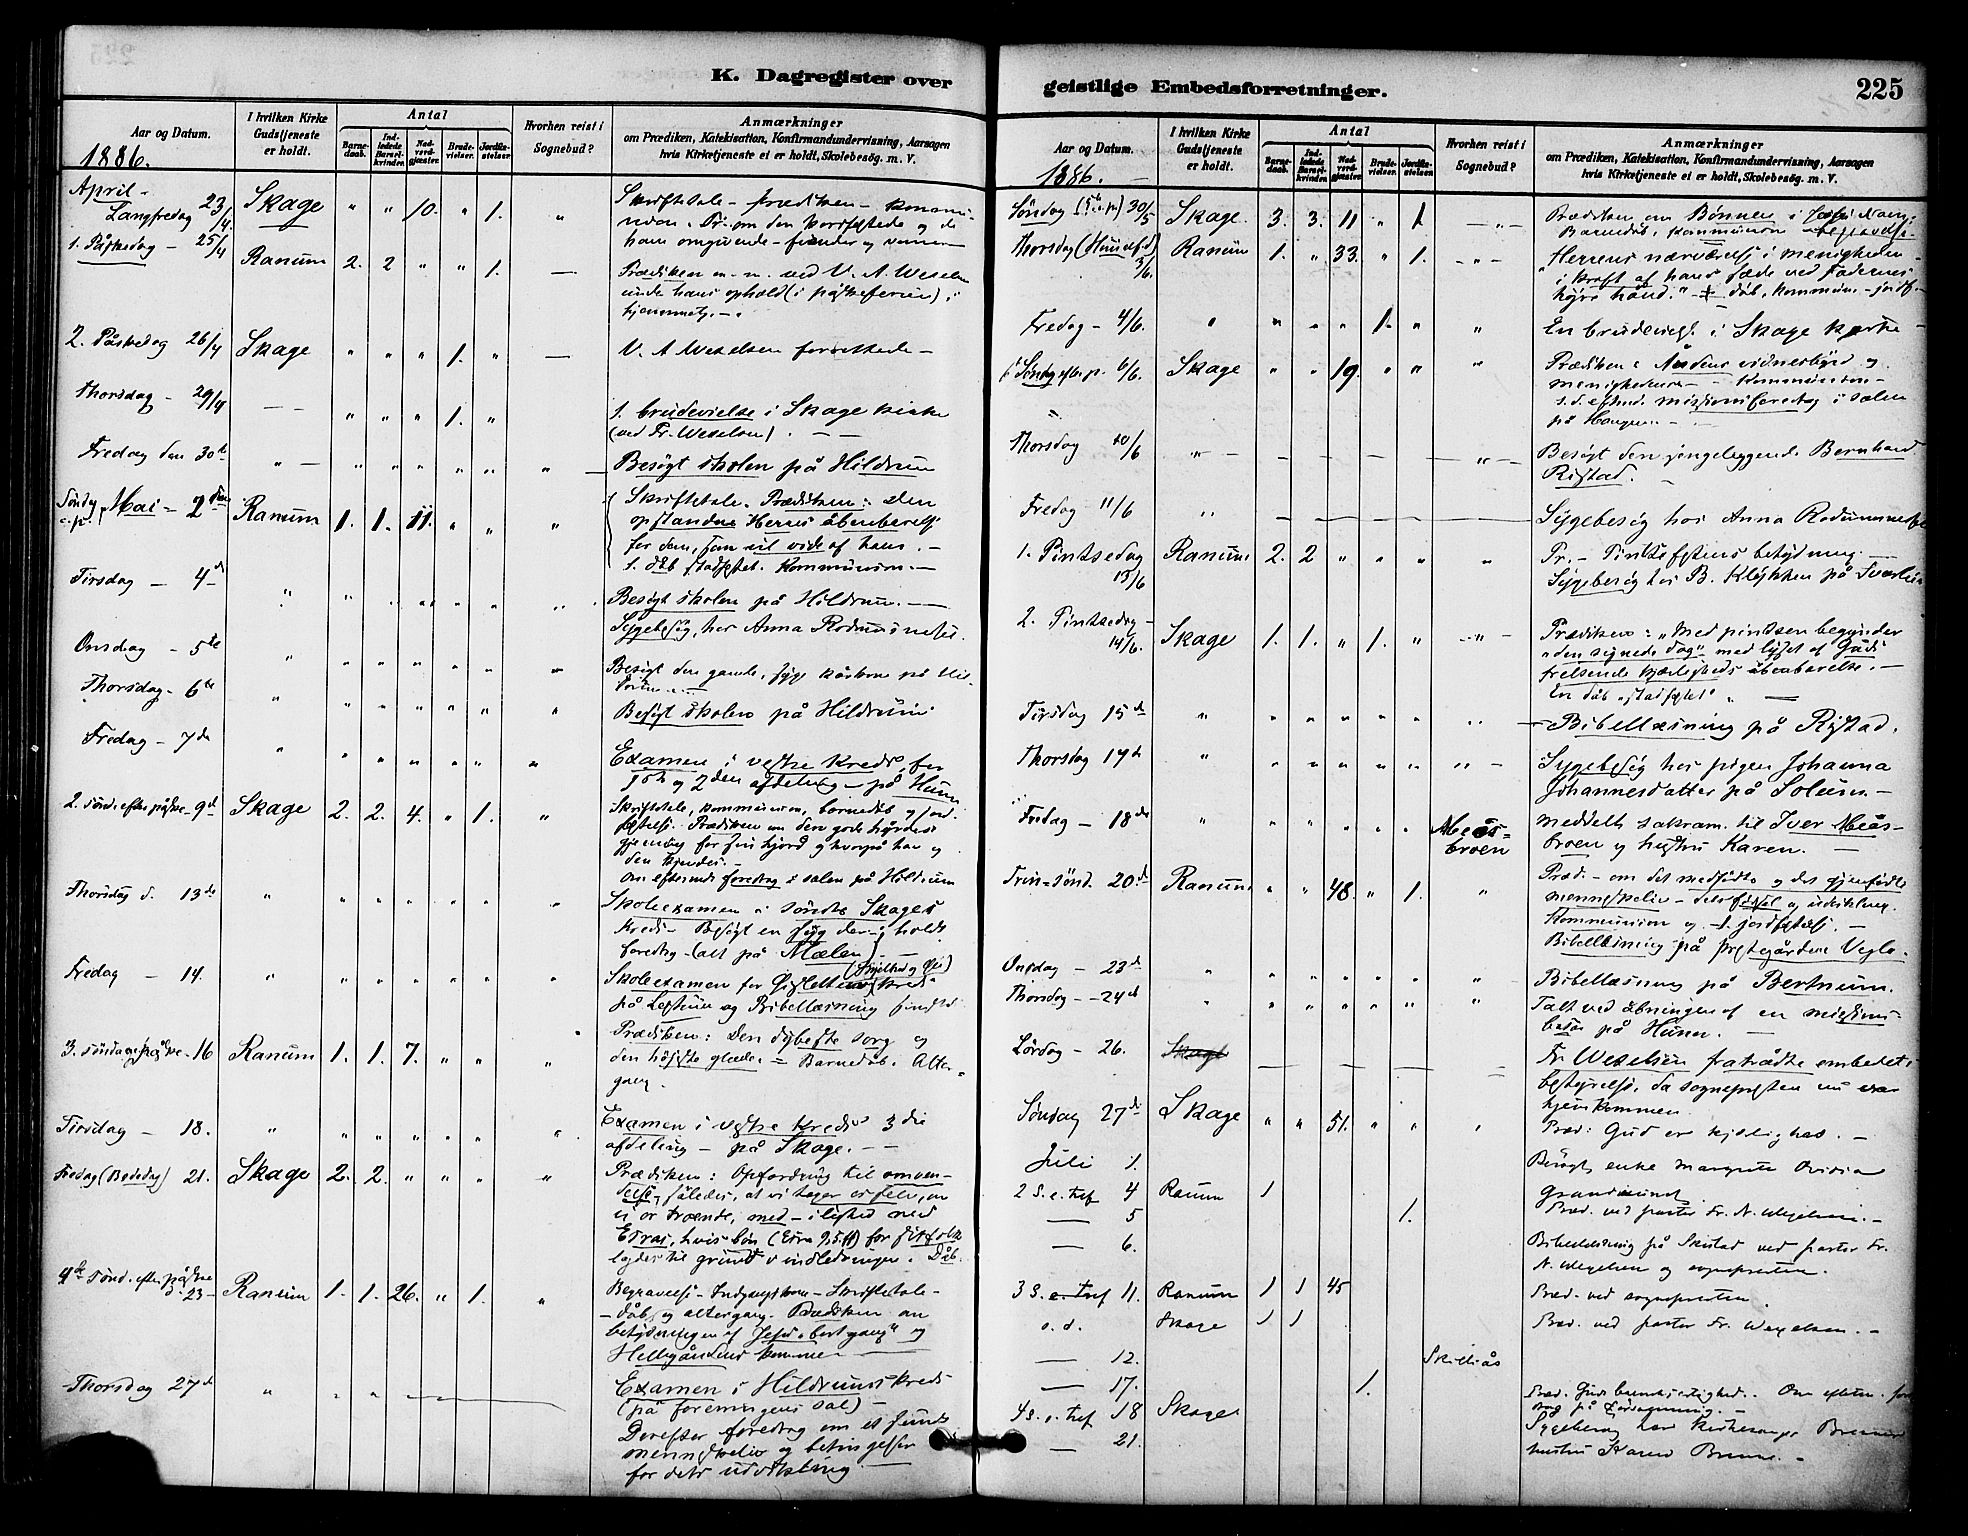 K. Dagregister over
Aar og Datum.
1886.
I hvilken Kirke
Gudstjeneste
er holdt.
Antal
Barne-
daab.
Ind-
ledede
Barsel-
kvinder.
Nad-
verd-
gjæster.
Brude-
vielser.
Jordfæ-
stelser.
Hvorhen reist i
Sognebud?
Anmærkninger
om Prædiken, Katekisation, Konfirmandundervisning, Aarsagen
hvis Kirketjeneste ei er holdt, Skolebesög. m. V.
April -
Langfredag 23/4. Skage " " 10. " 1. " Skriftetale - prædiken -
1. Påskedag - 25/4 Ranum 2. 2 " " 1. — Prædiken m. m. ved V. A. Wexelsen
under hans ophold (i påskeferien) i
hjemmet. -
2. Påskedag 26/4 Skage " " " 1. " — V. A. Wexelsen forrettede -
Thorsdag - 29/4 — " " " 1. " 1. brudevielse i Skage kirke
(ved Fr. Wexelsen). —
Fredag den 30te " Besögt skolen på Hildrum
Mai - 2den Ranum 1. 1. 11. " " " Skriftetale. Prædiken: Den
opstandne Herres åbenbarelse
for dem, som vil vide af ham. -
1. dåb stadfæstet. Kommunion. -
Tirsdag - 4de " Besögt skolen på Hildrum. —
Sygebesög hos Anna
Onsdag - 5te " Besögt den gamle, syge på Hil-
drum. —
Thorsdag - 6te " Besögt skolen på Hildrum
Fredag - 7de " Examen i vestre kreds, for
1ste og 2den afdeling - på Hunn
2. sönd. efter påske - 9de Skage 2. 2. 4. " 1. " Skriftetale, kommunion, barnedåb og jord-
fæstelse. Prædiken om den gode hyrdes
for sin hjord og
den kjendes. -
Om efterm. foredrag i salen på Hildrum
Thorsdag d. 13de " Skoleexamen i söndre Skages
kreds - Besögt en syg der - og holdt
foredrag - (alt på Mælen) -
Fredag - 14. " Skoleexamen for kreds
på og Bibellæsning
3. söndag e. påske - 16 Ranum 1. 1. 7. " " " Prædiken: Den dybeste sorg og
den höjeste glæde. = Barnedåb. Alter-
gang.
Tirsdag - 18. " Examen i vestre kreds 3die
afdeling - på Skage. —
Fredag (Bededag) 21. Skage 2. 2. " " " " Prædiken: Opfordring til omven-
delse, således, at vi tager os selv, om
vi er troende, med - i lighed med
Esras, hvis bön (Esra 9, 5 ff) for sit folk
lagdes til grund v. indledningen. Dåb.
4de sönd. efter påske
23 - Ranum 1. 1. 26. " 1. " Begravelse - - Skriftetale -
- dåb og altergang. Prædiken om
betydningen af Jesu "bortgang" og
Helligåndens komme —
Thorsdag 27de " Examen i Hildrums kreds
(på foreningens sal) -
Derefter foredrag om et sundt
menneskeliv og betingelser
for dets udvikling.
geistlige Embedsforretninger.
225
Aar og Datum.
1886. —
I hvilken Kirke
Gudstjeneste
er holdt.
Antal
Barne-
daab.
Ind-
ledede
Barsel-
kvinder.
Nad-
verd-
gjæster.
Brude-
vielser.
Jordfæ-
stelser.
Hvorhen reist i
Sognebud?
Anmærkninger
om Prædiken, Katekisation, Konfirmandundervisning, Aarsagen
hvis Kirketjeneste ei er holdt, Skolebesög. m. V.
Söndag (5te e. p.) 30/5 Skage. 3. 3. 11 " 1 — Prædiken om Bönnen i Jesu Navn.
Barnedåb, kommunion - begravelse.
Thorsdag 3/6. Ranum 1. " 33. " 1. — "Herrens nærværelse i menigheden
i kraft af hans sæde ved Faderens
höyre hånd." - dåb, kommun. - jordf. -
Fredag - 4/6. " " " 1. " " En brudevielse i Skage kirke -
Söndag efter p. 6/6. Skage " " 19. " " " Prædiken: Åndens vidnesbyrd og
menighedens - - Kommunion -
s. d. efterm. missionsforedrag i salen
på Haugum -
Thorsdag 10/6 " — Besögt den sengeliggende Bernhard
Ristad.
Fredag 11/6 " Sygebesög hos Anna
1. Pintsedag
13/6 Ranum 2. 2 " " " " Pr. - Pintsefestens betydning. —
Sygebesög hos B. Klykken på
2. Pintsedag -
14/6. Skage 1. 1. " 1. " — Prædiken: "Med pintsen begynder
"den signede dag" med lyset af Guds
frelsende kjærligheds åbenbarelse. -
En dåb "stadfæstet" —
Tirsdag 15de " - Bibellæsning på Ristad.
Thorsdag 17de " Sygebesög hos pigen Johanna
Johannesdatter på Solum. -
Fredag - 18de " Meås-
broen Meddelt sakram. til Iver Meås-
broen og hustru Karen. —
Trin = sönd. 20de Ranum " " 48. " 1. " Præd. - om det medfödte og det gjenfödte
menneskeliv - dets og udvikling.
Kommunion og 1 jordfæstelse. -
Bibellæsning på prestegården Veglo.
Onsdag - 23de " Bibellæsning på Bertnum.
Thorsdag - 24de " Talt ved åbningen af en missions-
basar på Hunn. —
Lördag - 26. Skage — Fr. Wexelsen fratrådte embedets
bestyrelse, da sognepresten nu var
hjemkommen.
Söndag 27de Skage " " 51. " " " Præd: Gud er kjærlighed. -
Juli 1. Besögt enke Margrete
Grandmund.
2 S. e. Tref 4 Ranum 1 Præd. ved pastor Fr. N. Wexelsen. -
— 5 1.
— 6. Bibellæsning på Skistad ved pastor Fr.
N. Wexelsen og sognepresten.
3 S. e. Tref 11. Ranum 1 1 45 Præd. ved sognepresten.
s. d. Skage 1 1 Præd. ved pastor Fr. Wexelsen. -
— 12. Skillås
— 17. 1.
4 S. e. Tref 18 Skage Præd. Guds barmhjertighed. Om efterm. fore-
drag på
— 21. Sygebesög hos kirkesanger
hustru Karen